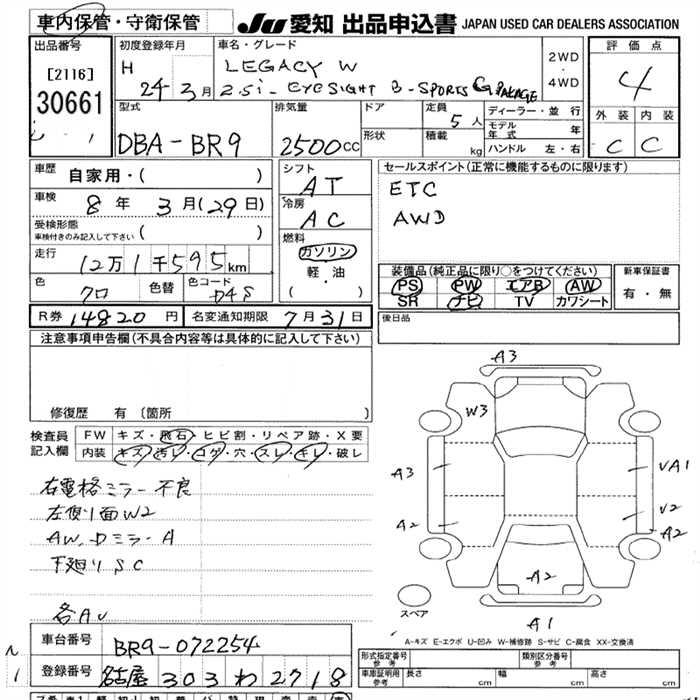 車内保管・守衛保管
JU 愛知 出品申込書 JAPAN USED CAR DEALERS ASSOCIATION
出品番号
[2116]
30661
初度登録年月
H 24年 3月
車名・グレード
LEGACY W
2.5i - EYESIGHT B-SPORTS G PAKAGE
2WD
・
4WD
評価点
4
外装 内装
C C
型式
DBA-BR9
排気量
2500cc
ドア
形状
定員
5人
積載
kg
ディーラー・並行
モデル年式 年
ハンドル 左・右
車歴
自家用・( )
車検
8年 3月(29日)
受検形態
車検付きのみ記入して下さい ( )
走行
12万1千595km
色
クロ
色替
色コード
D4S
シフト
AT
冷房
AC
燃料
ガソリン
軽・油
( ・ )
セールスポイント(正常に機能するものに限ります)
ETC
AWD
装備品(純正品に限り○をつけてください)
PS PW エアB AW
SR ナビ TV カワシート
新車保証書
有・無
R券 14820円 名変通知期限 7月31日
後日品
注意事項申告欄(不具合内容等は具体的に記入して下さい)
修復歴 有 〔箇所 〕
検査員
記入欄
FW キズ・飛石・ヒビ割・リペア跡・X要
内装 キズ・汚レ・コゲ・穴・スレ・キレ・破レ
右電格ミラー不良
左側面W2
AW、Dミラー A
下廻りSC
各AU
A3
W3
A3
A2
UA1
U2
A2
A2
A1
スペア
A-キズ E-エクボ U-凹み W-補修跡 S-サビ C-腐食 XX-交換済
車台番号
BR9-072254
登録番号
名古屋 303 わ 2718
形式指定番号
参考
類別区分番号
参考
車庫証明用
参考
長さ cm
幅 cm
高さ cm